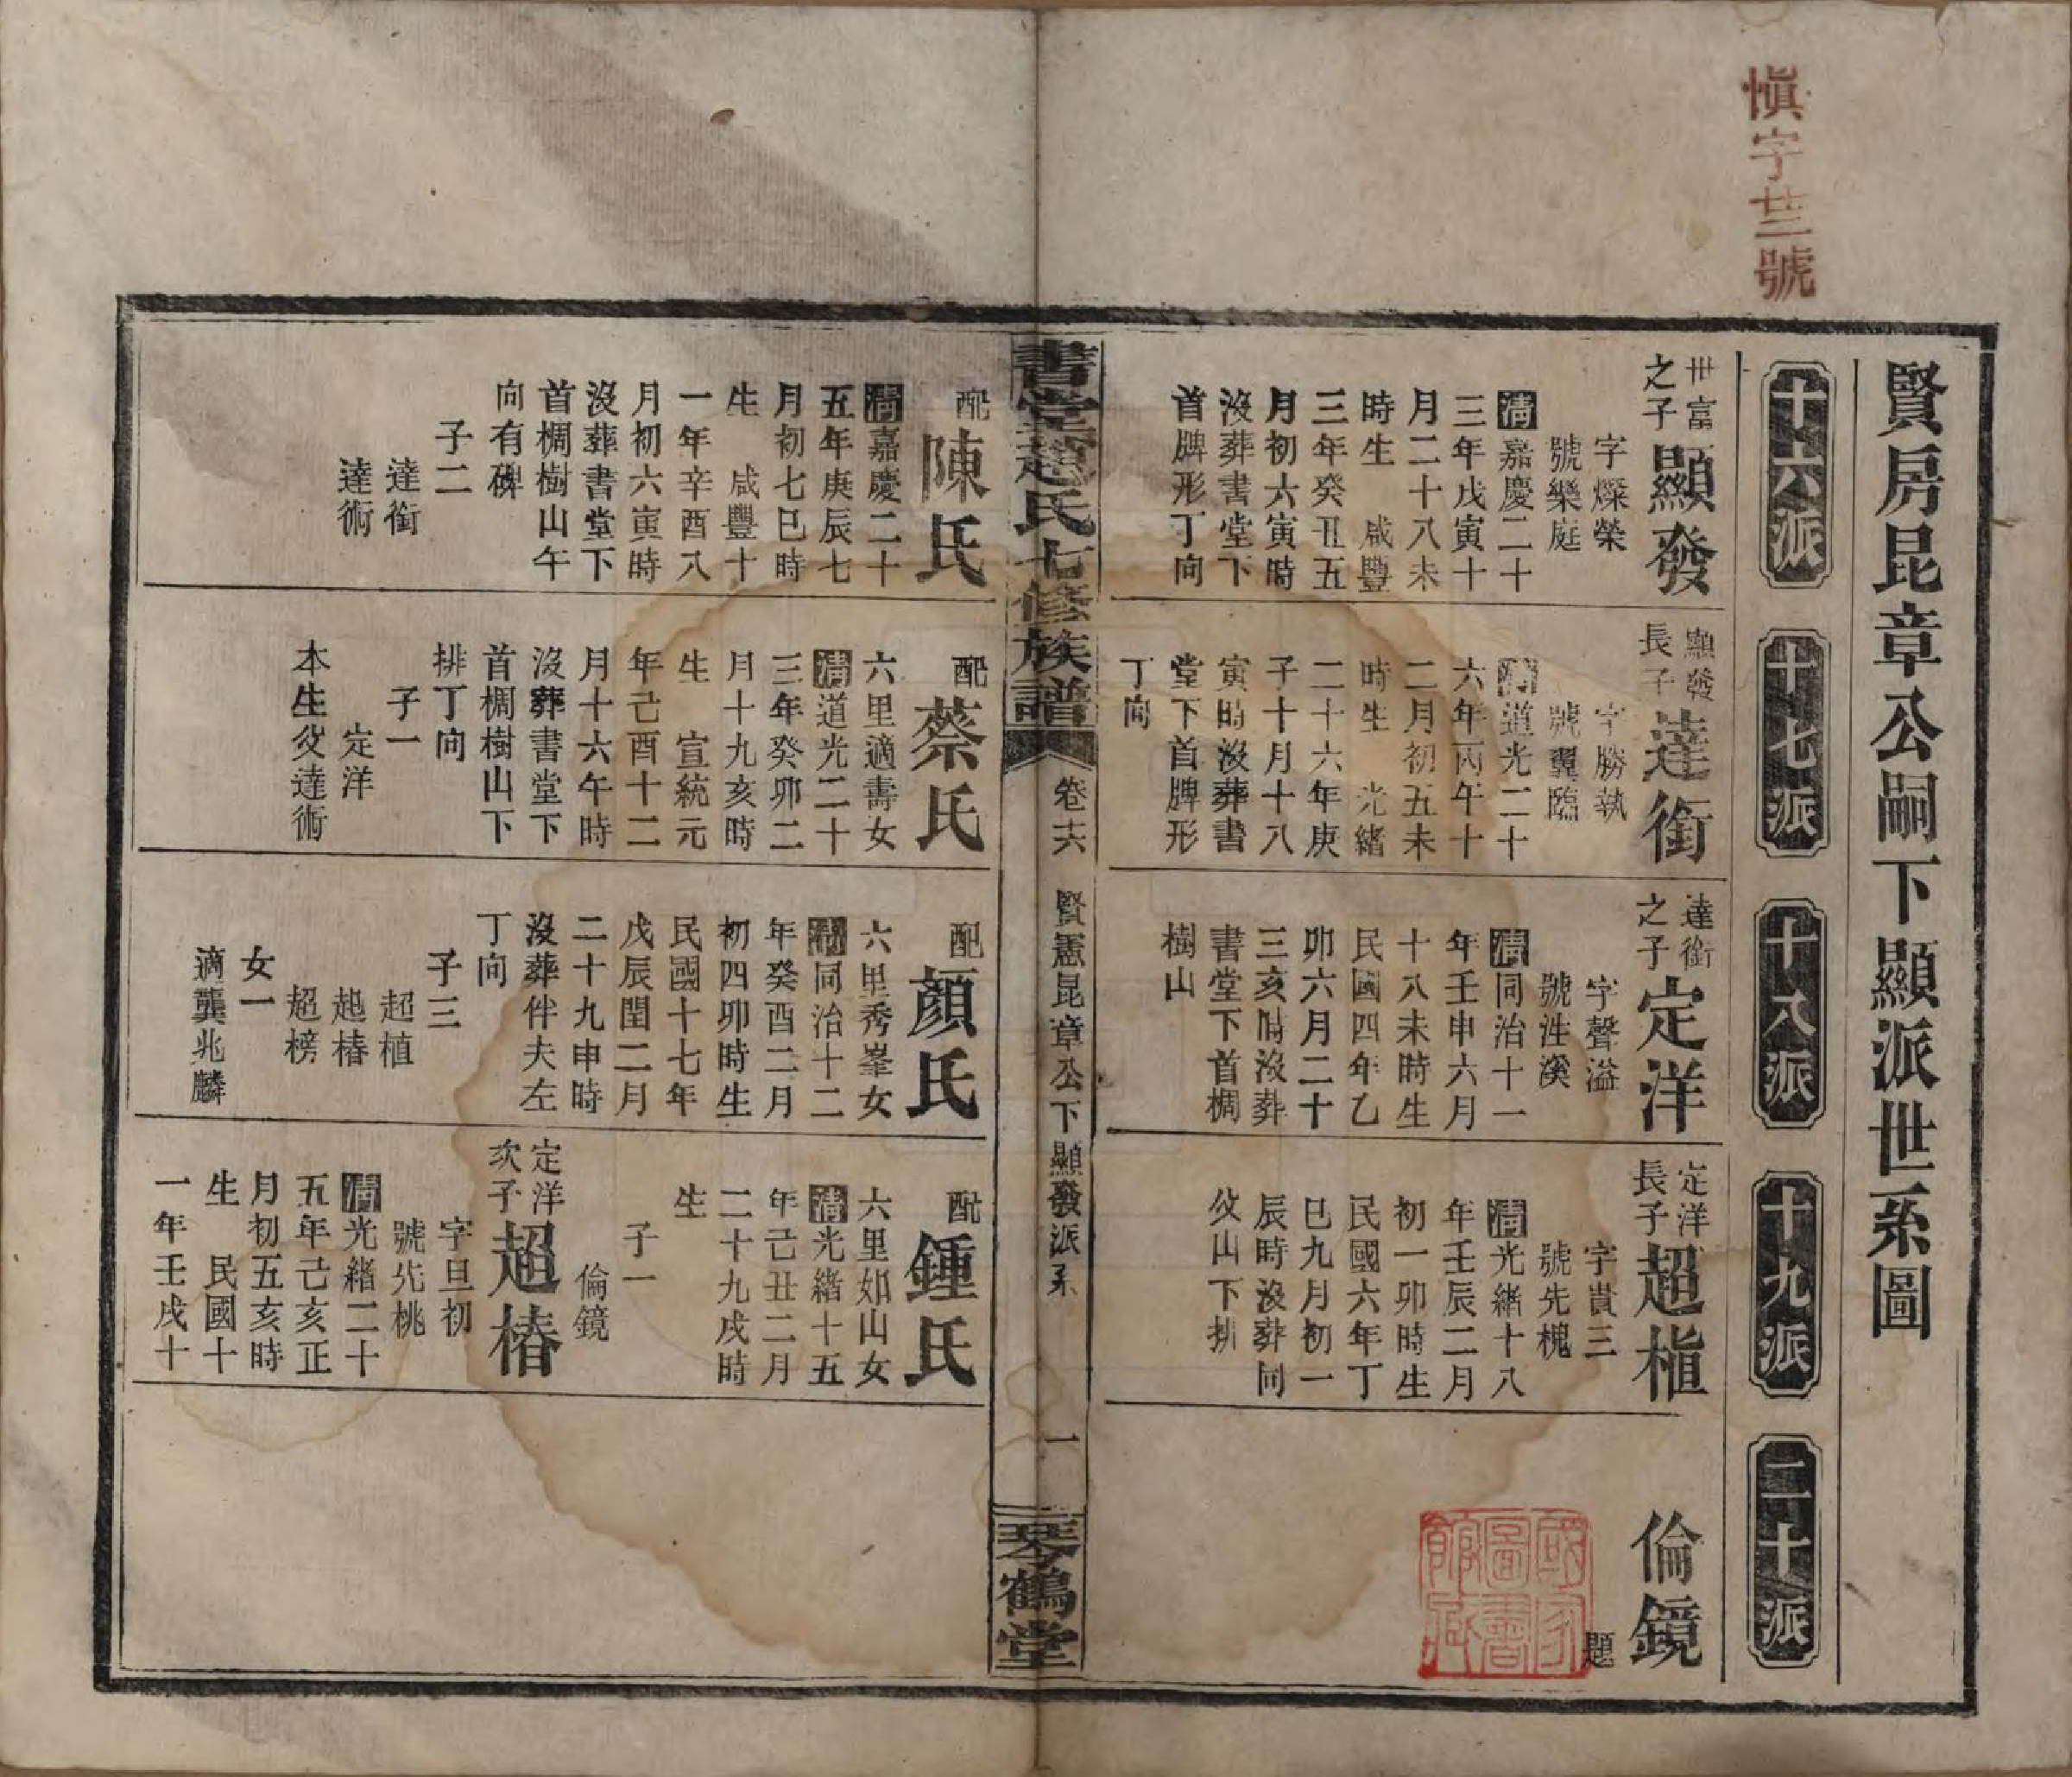 慎字廿三號
賢房昆章公嗣下顯派世系圖
十六派
十七派
十八派
十九派
二十派
世富
之子
顯發
字燦榮
號樂庭
清嘉慶二十
三年戊寅十
月二十八未
時生 咸豐
三年癸丑五
月初六寅時
沒葬書堂下
首牌形丁向
顯發
長子
達銜
字勝執
號翼臨
清道光二十
六年丙午十
二月初五未
時生 光緒
二十六年庚
子十月十八
寅時沒葬書
堂下首牌形
丁向
達銜
之子
定洋
字聲溢
號泩溪
清同治十一
年壬申六月
十八未時生
民國四年乙
卯六月二十
三亥時沒葬
書堂下首椆
樹山
定洋
長子
超植
字貴三
號先槐
清光緒十八
年壬辰二月
初一卯時生
民國六年丁
巳九月初一
辰時沒葬同
父山下排
倫鏡
題
國家圖書館藏
書堂趙氏七修族譜
卷十六
賢憲昆章公下顯發派系
一
琴鶴堂
配
陳氏
清嘉慶二十
五年庚辰七
月初七巳時
生 咸豐十
一年辛酉八
月初六寅時
沒葬書堂下
首椆樹山午
向有碑
子二
達銜
達術
配
蔡氏
六里適壽女
清道光二十
三年癸卯二
月十九亥時
生 宣統元
年己酉十二
月十六午時
沒葬書堂下
首椆樹山下
排丁向
子一
定洋
本生父達術
配
顏氏
六里秀峯女
清同治十二
年癸酉二月
初四卯時生
民國十七年
戊辰閏二月
二十九申時
沒葬伴夫左
丁向
子三
超植
超椿
超榜
女一
適龔兆麟
配
鍾氏
六里如山女
清光緒十五
年己丑二月
二十九戌時
生
子一
倫鏡
定洋
次子
超椿
字旦初
號先桃
清光緒二十
五年己亥正
月初五亥時
生 民國十
一年壬戌十